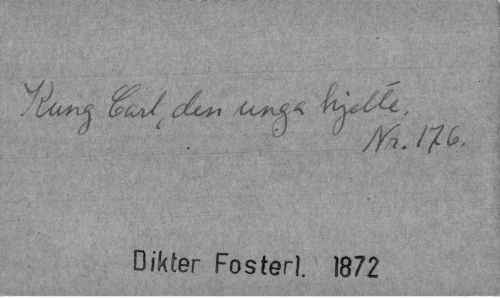 Kung Carl, den unga hjelte.
Nr. 176.
Dikter Fosterl. 1872